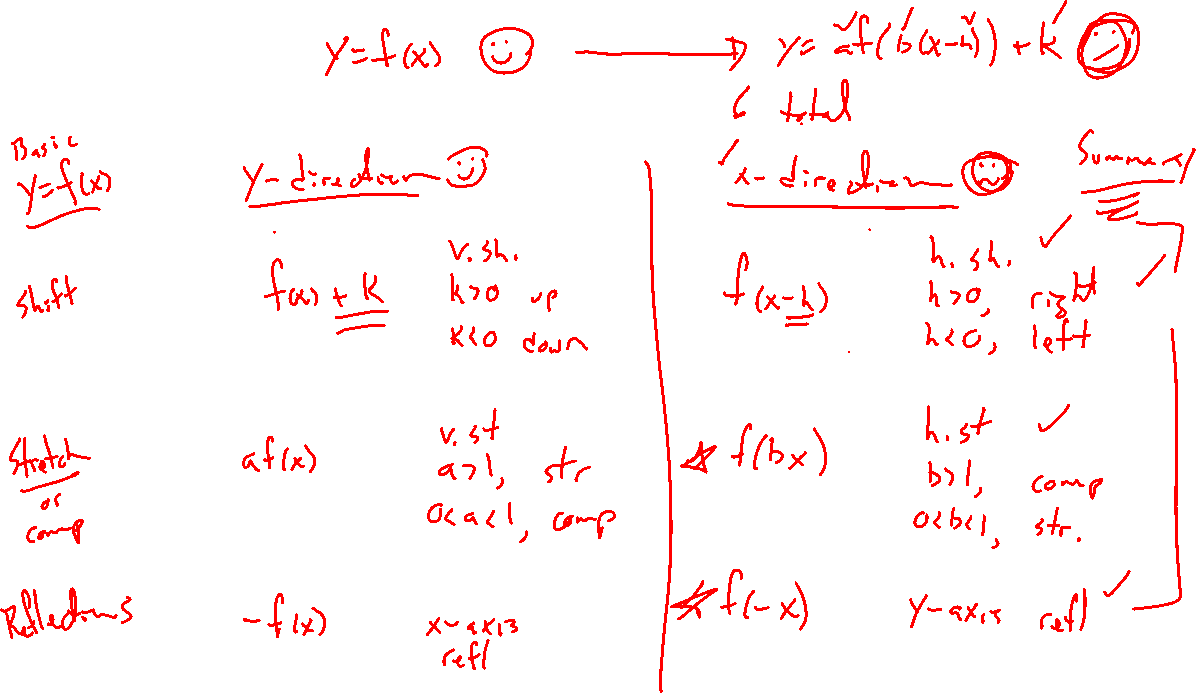 y=f(x) → y=af(b(x-h))+k
6 total
Basic
y=f(x) y-direction x-direction Summary
shift f(x)+k v.sh. k>0 up k<0 down f(x-h) h.sh. h>0, right h<0, left
Stretch or comp af(x) v.st a>1, str 0<a<1, comp f(bx) h.st b>1, comp 0<b<1, str.
Reflections -f(x) x-axis refl f(-x) y-axis refl